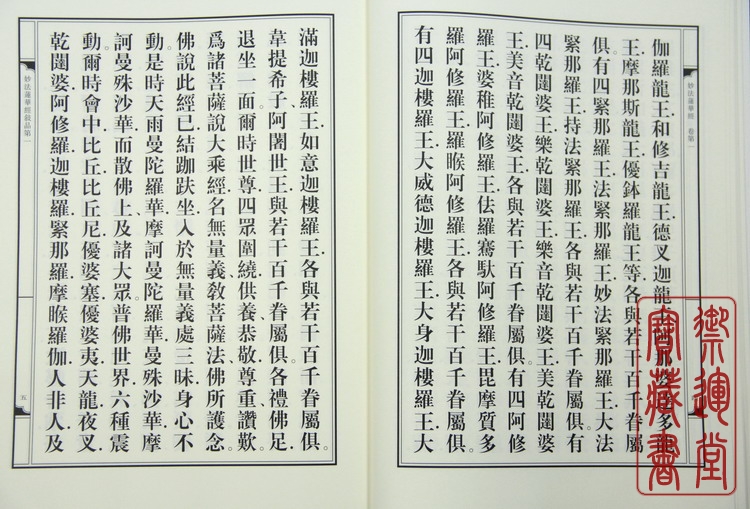 妙法蓮華經 卷第一
伽羅龍王。和修吉龍王。德叉迦龍王。阿那婆達多龍
王。摩那斯龍王。優鉢羅龍王等。各與若干百千眷屬
俱。有四緊那羅王。法緊那羅王。妙法緊那羅王。大法
緊那羅王。持法緊那羅王。各與若干百千眷屬俱。有
四乾闥婆王。樂乾闥婆王。樂音乾闥婆王。美乾闥婆
王。美音乾闥婆王。各與若干百千眷屬俱。有四阿修
羅王。婆稚阿修羅王。佉羅騫馱阿修羅王。毘摩質多
羅阿修羅王。羅睺阿修羅王。各與若干百千眷屬俱。
有四迦樓羅王。大威德迦樓羅王。大身迦樓羅王。大
滿迦樓羅王。如意迦樓羅王。各與若干百千眷屬俱。
韋提希子、阿闍世王。與若干百千眷屬俱。各禮佛足。
退坐一面。爾時世尊。四眾圍繞。供養、恭敬、尊重、讚歎。
爲諸菩薩說大乘經。名無量義。教菩薩法。佛所護念。
佛說此經已。結跏趺坐。入於無量義處三昧。身心不
動。是時天雨曼陀羅華。摩訶曼陀羅華。曼殊沙華。摩
訶曼殊沙華。而散佛上、及諸大眾。普佛世界。六種震
動。爾時會中。比丘。比丘尼。優婆塞。優婆夷。天龍。夜叉。
乾闥婆。阿修羅。迦樓羅。緊那羅。摩睺羅伽。人非人。及
妙法蓮華經敘品第一
五
禦運堂
寶藏書